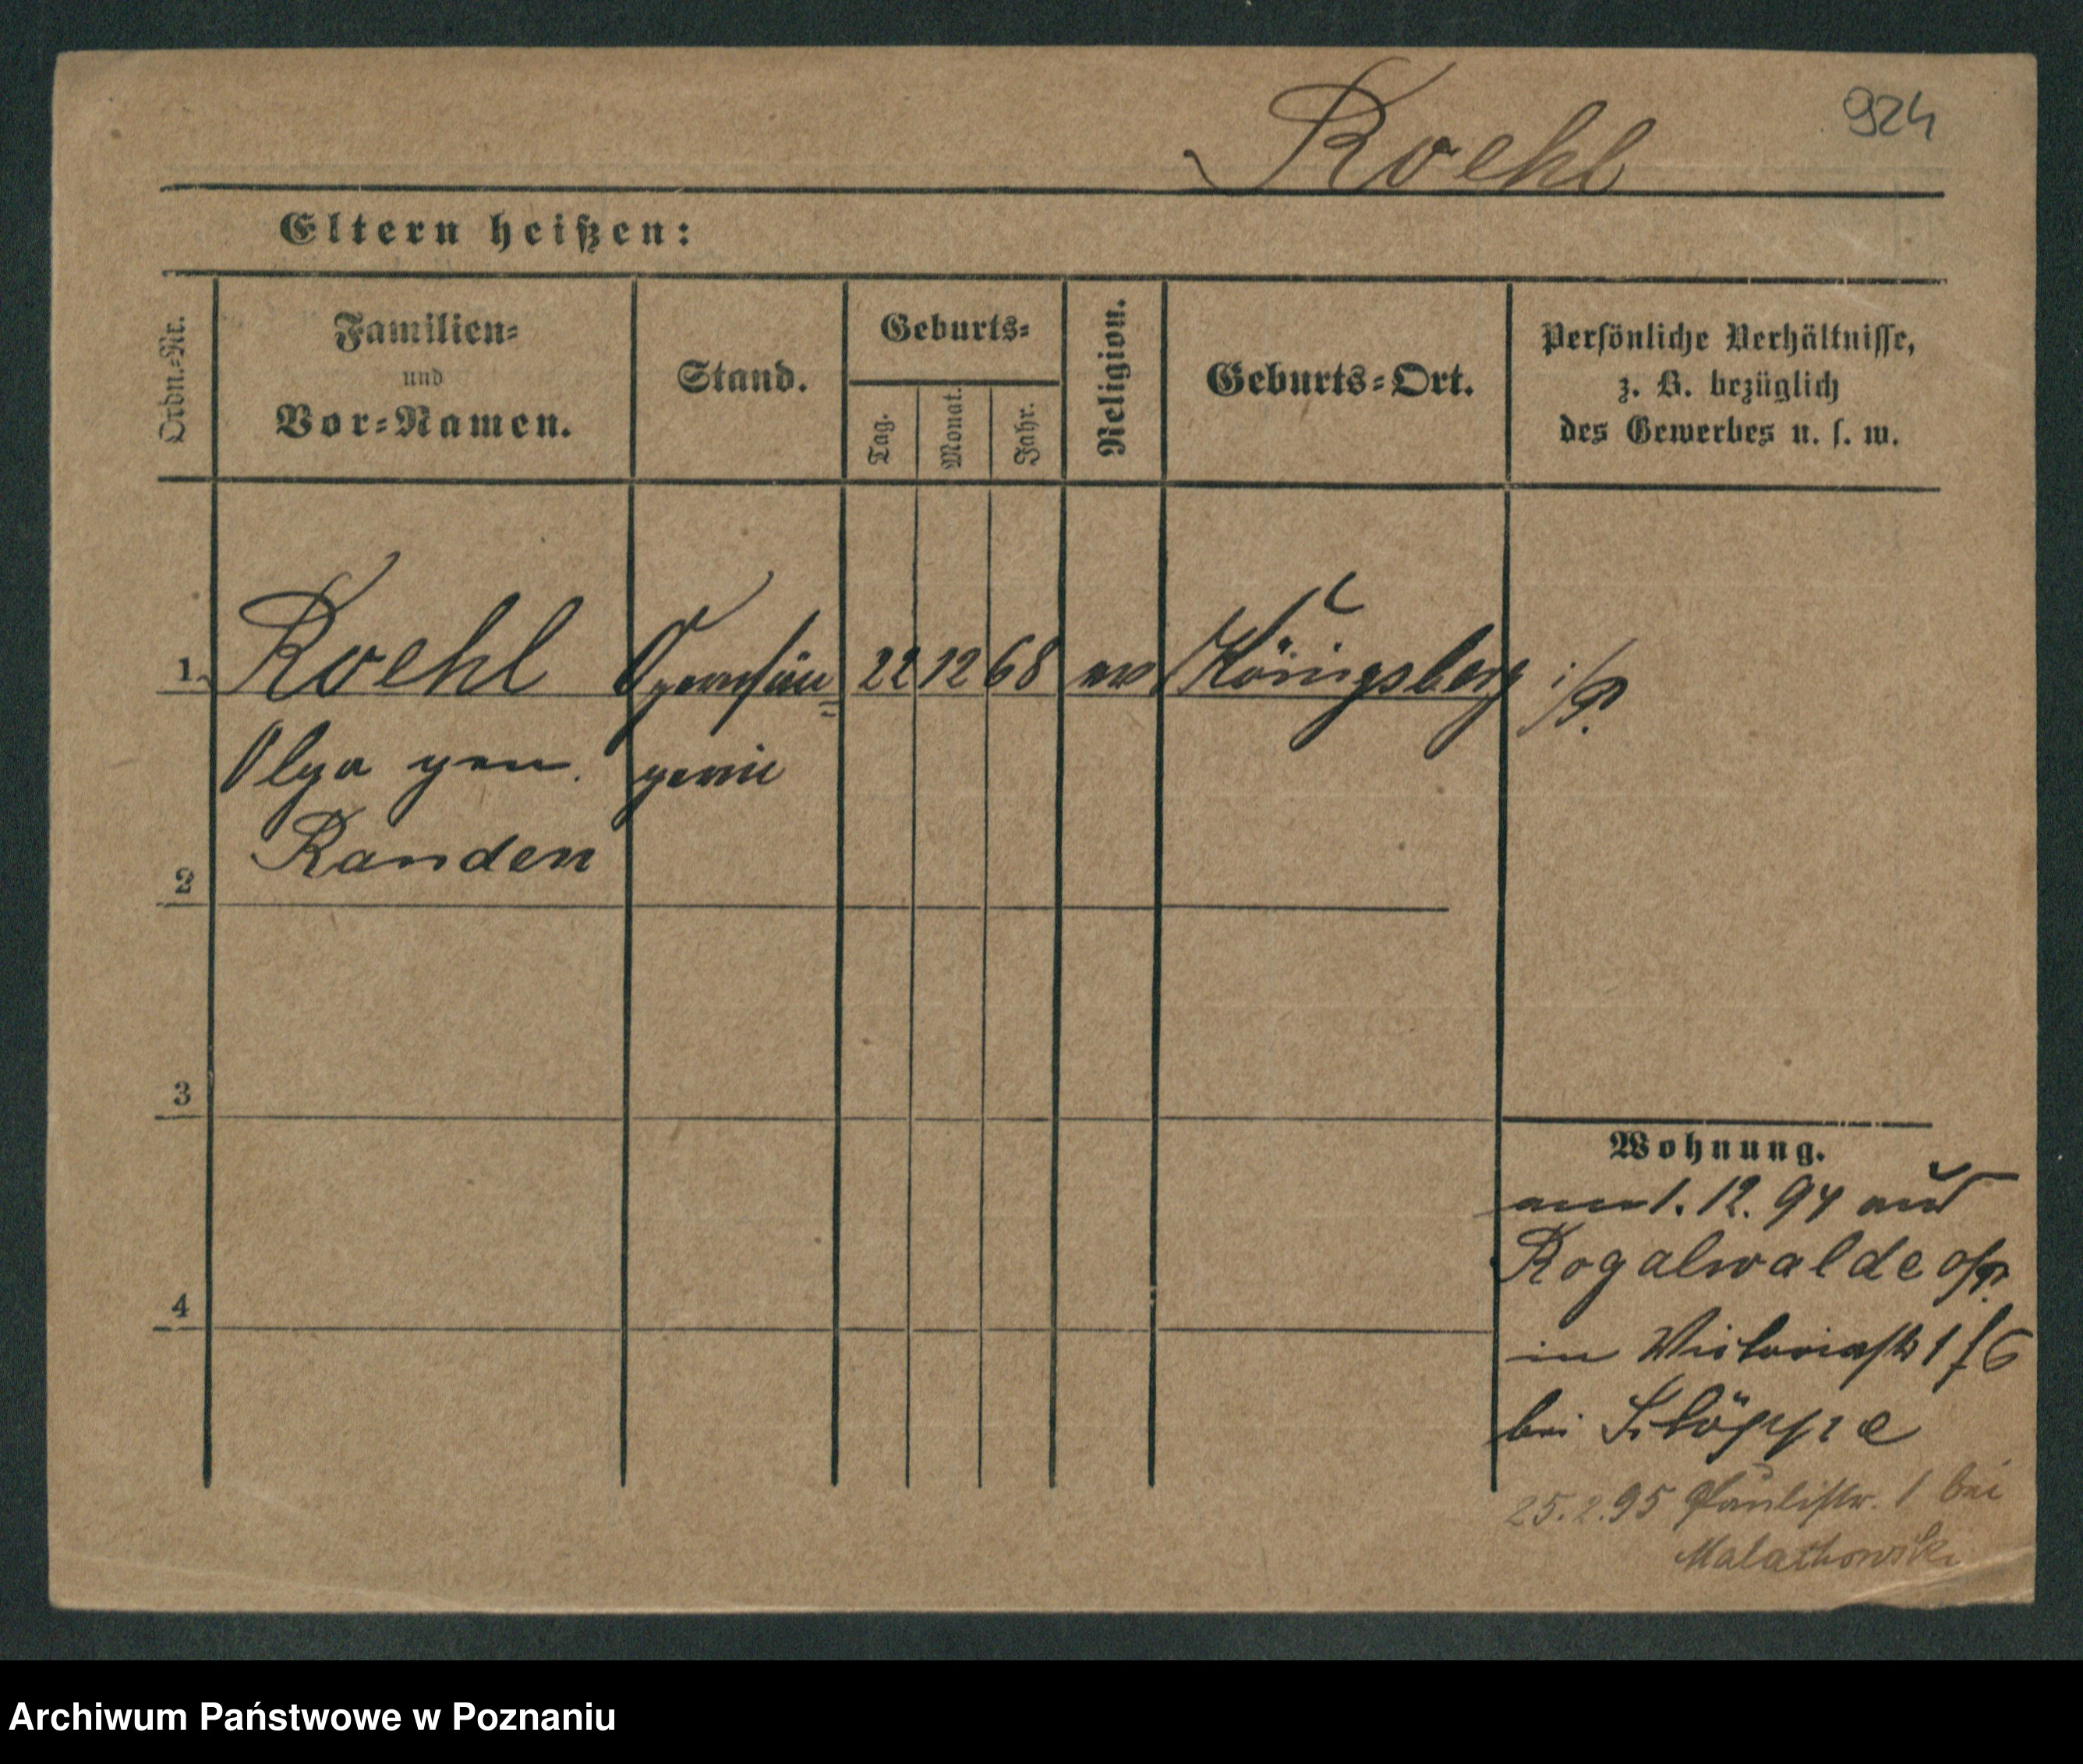 924
Roehl
Eltern heißen:
Ordn.-Nr.
Familien-
und
Vor-Namen.
Stand.
Geburts-
Tag.
Monat.
Jahr.
Religion.
Geburts-Ort.
Persönliche Verhältnisse,
z. B. bezüglich
des Gewerbes u. s. w.
1 Roehl Opernsän= 22 12 68 ev Königsberg i/P.
Olga gen. gerin
2 Randen
3
4
Wohnung.
am 1. 12. 94 aus
Rogalwalde o/P.
in Victoriastr
bei
25.2.95 Paulistr. 1 bei
Malachowski
Archiwum Państwowe w Poznaniu